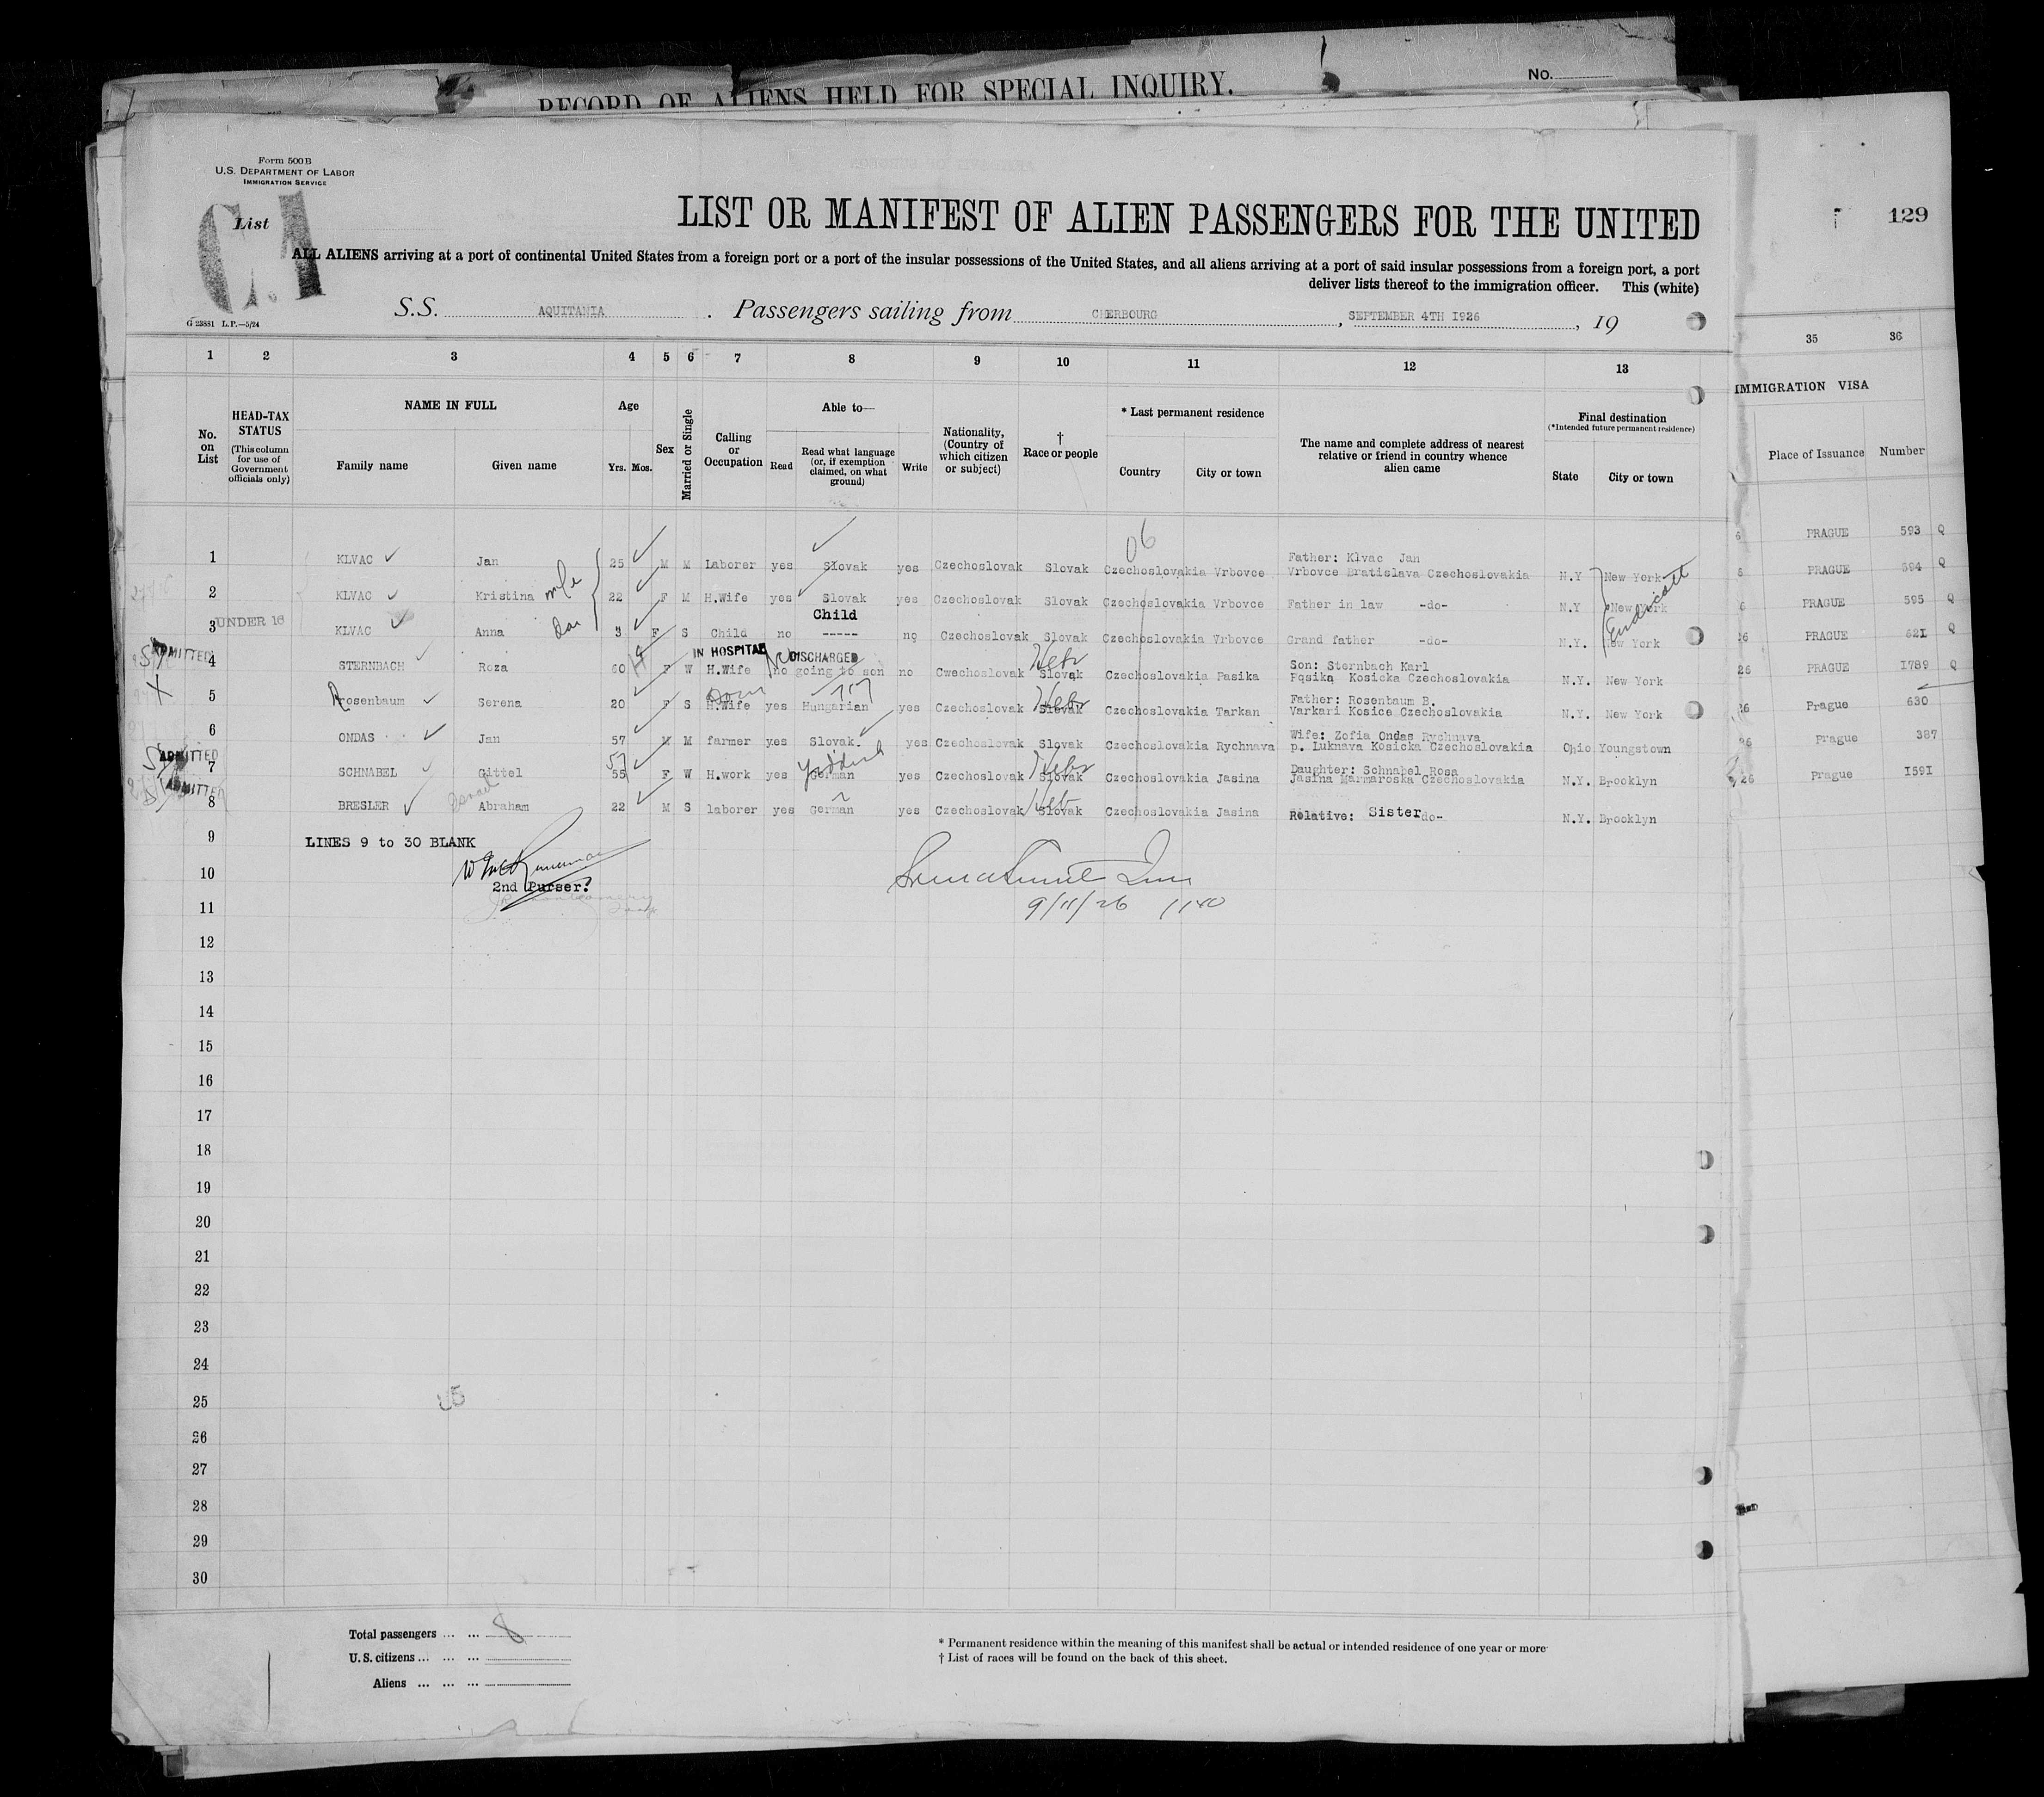 RECORD OF ALIENS HELD FOR SPECIAL INQUIRY.
No.
Form 500B
U.S. DEPARTMENT OF LABOR
IMMIGRATION SERVICE
List
LIST OR MANIFEST OF ALIEN PASSENGERS FOR THE UNITED
129
ALL ALIENS arriving at a port of continental United States from a foreign port or a port of the insular possessions of the United States, and all aliens arriving at a port of said insular possessions from a foreign port, a port
deliver lists thereof to the immigration officer. This (white)
S.S. AQUITANIA. Passengers sailing from CHERBOURG, SEPTEMBER 4TH 1926, 19
G 23881 L.P.—5/24
1 2 3 4 5 6 7 8 9 10 11 12 13 35 36
No. on List
HEAD-TAX STATUS
(This column for use of Government officials only)
NAME IN FULL
Family name Given name
Age
Yrs. Mos.
Sex
Married or Single
Calling or Occupation
Able to—
Read
Read what language (or, if exemption claimed, on what ground)
Write
Nationality, (Country of which citizen or subject)
† Race or people
* Last permanent residence
Country City or town
The name and complete address of nearest relative or friend in country whence alien came
Final destination
(*Intended future permanent residence)
State City or town
IMMIGRATION VISA
Place of Issuance Number
06
1 KLVAC Jan 25 M M Laborer yes Slovak yes Czechoslovak Slovak Czechoslovakia Vrbovce Father: Klvac Jan Vrbovce Bratislava Czechoslovakia N.Y New York PRAGUE 593 Q
2 KLVAC Kristina wife 22 F M H.Wife yes Slovak yes Czechoslovak Slovak Czechoslovakia Vrbovce Father in law -do- N.Y New York Endicott PRAGUE 594 Q
3 UNDER 16 KLVAC Anna dau 3 F S Child no Child ----- no Czechoslovak Slovak Czechoslovakia Vrbovce Grand father -do- N.Y. New York PRAGUE 595 Q
ADMITTED
4 STERNBACH Roza 60 F W H.Wife IN HOSPITAL DISCHARGED no going to son no Cwechoslovak Slovak Hebr Czechoslovakia Pasika Son: Sternbach Karl Pasika Kosicka Czechoslovakia N.Y. New York 26 PRAGUE 621 Q
5 Rosenbaum Serena 20 F S H.Wife Dom yes Hungarian yes Czechoslovak Slovak Hebr Czechoslovakia Tarkan Father: Rosenbaum B. Varkari Kosice Czechoslovakia N.Y. New York 26 PRAGUE 1789 Q
6 ONDAS Jan 57 M M farmer yes Slovak. yes Czechoslovak Slovak Czechoslovakia Rychnava Wife: Zofia Ondas Rychnava p. Luknava Kosicka Czechoslovakia Ohio Youngstown 26 Prague 630
ADMITTED
7 SCHNABEL Gittel 55 57 F W H.work yes German Yiddish yes Czechoslovak Slovak Hebr Czechoslovakia Jasina Daughter: Schnabel Rosa Jasina Marmaroska Czechoslovakia N.Y. Brooklyn 26 Prague 387
ADMITTED
8 BRESLER Israel Abraham 22 M S laborer yes German yes Czechoslovak Slovak Heb Czechoslovakia Jasina Relative: Sister -do- N.Y. Brooklyn 26 Prague 1591
9 LINES 9 to 30 BLANK
10
2nd Purser?
9/11/26 1140
11
12
13
14
15
16
17
18
19
20
21
22
23
24
25
26
27
28
29
30
Total passengers ... ... 8
U.S. citizens ... ... ...
Aliens ... ... ...
* Permanent residence within the meaning of this manifest shall be actual or intended residence of one year or more
† List of races will be found on the back of this sheet.